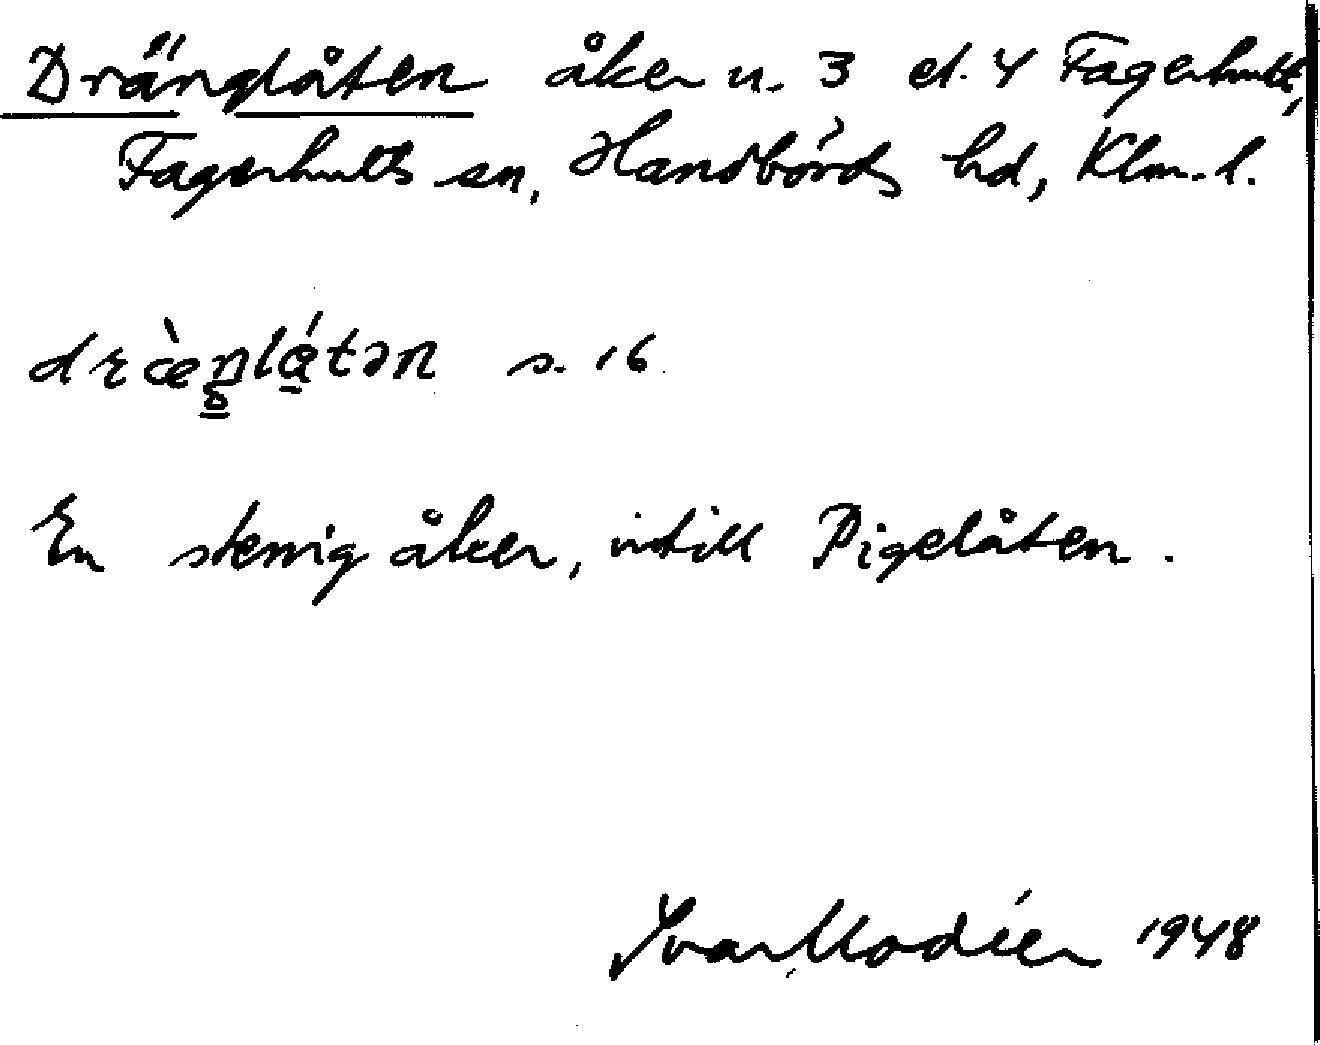 Dränglåten åker u. 3 el. 4 Fagerhult,
Fagerhults sn, Handbörds hd, Klm. l.
dræ̀ŋlǻtən s. 16.
En stenig åker, intill Pigelåten.
Ivar Modéer 1948